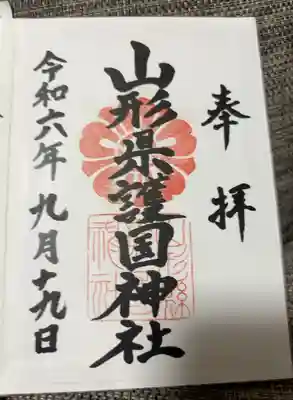 奉拝
山形県護国神社
令和六年九月十九日